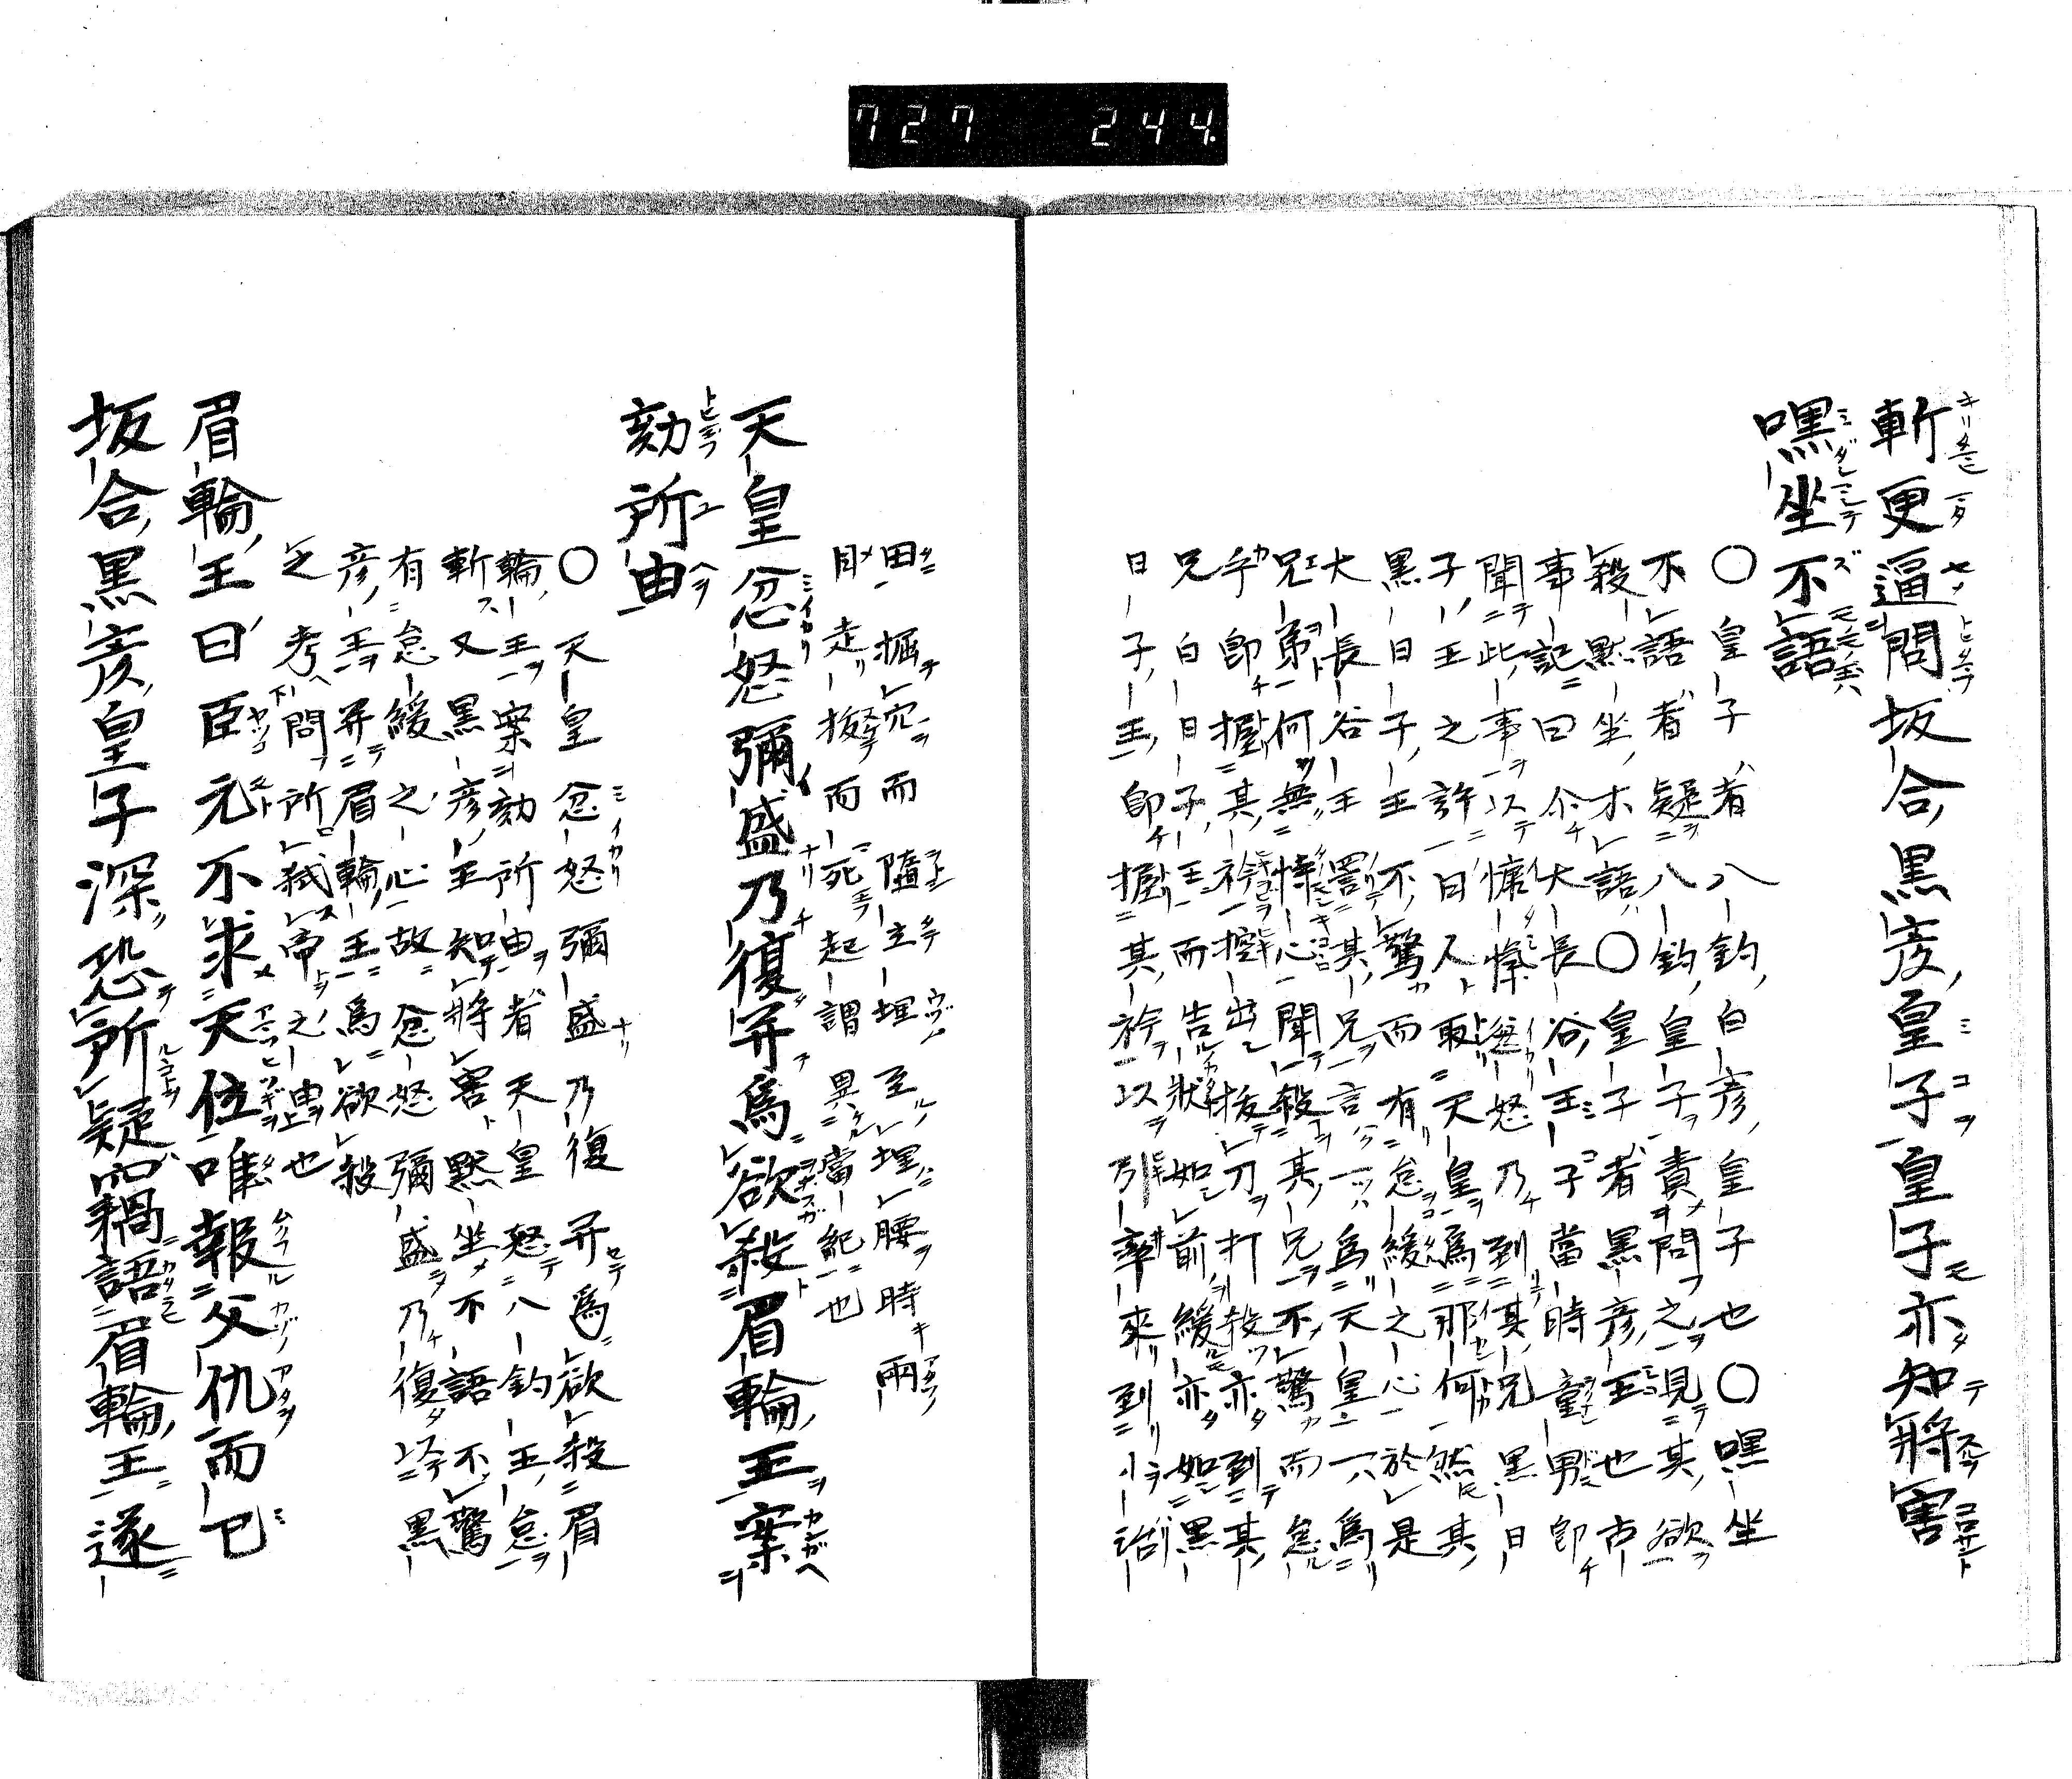 727 244.
斬更逼問坂合黒彦皇子皇子亦知將害
嘿坐不語
〇皇子者八釣白彦皇子也〇嘿坐
不語者疑八釣皇子責問之見其欲
殺默坐不語〇皇子者黒彦王也古
事記曰尒大長谷王子當時童男即
聞此事以慷愾怒乃到其兄黒日
子王之許曰人取天皇為那何然其
黒日子王不驚而有怠緩之心於是
大長谷王詈其兄言一為天皇一為
兄弟何無恃心聞殺其兄不驚而怠
乎即握其衿控出抜刀打殺亦到其
兄白日子王而告狀如前緩亦如黒
日子王即握其衿以引率來到小治
田掘穴而隨立埋至埋腰時兩
目走抜而死起謂異當紀也
天皇忿怒彌盛乃復并為欲殺眉輪王案
劾所由
〇天皇忿怒彌盛乃復并為欲殺眉
輪王案劾所由者天皇怒八釣王怠
斬又黒彦王知將害默坐不語不驚
有怠緩之心故忿怒彌盛乃復以黒
彦王并眉輪王為欲殺
之考問所弑帝之由也
眉輪王曰臣元不求天位唯報父仇而已
坂合黒彦皇子深恐所疑竊語眉輪王遂